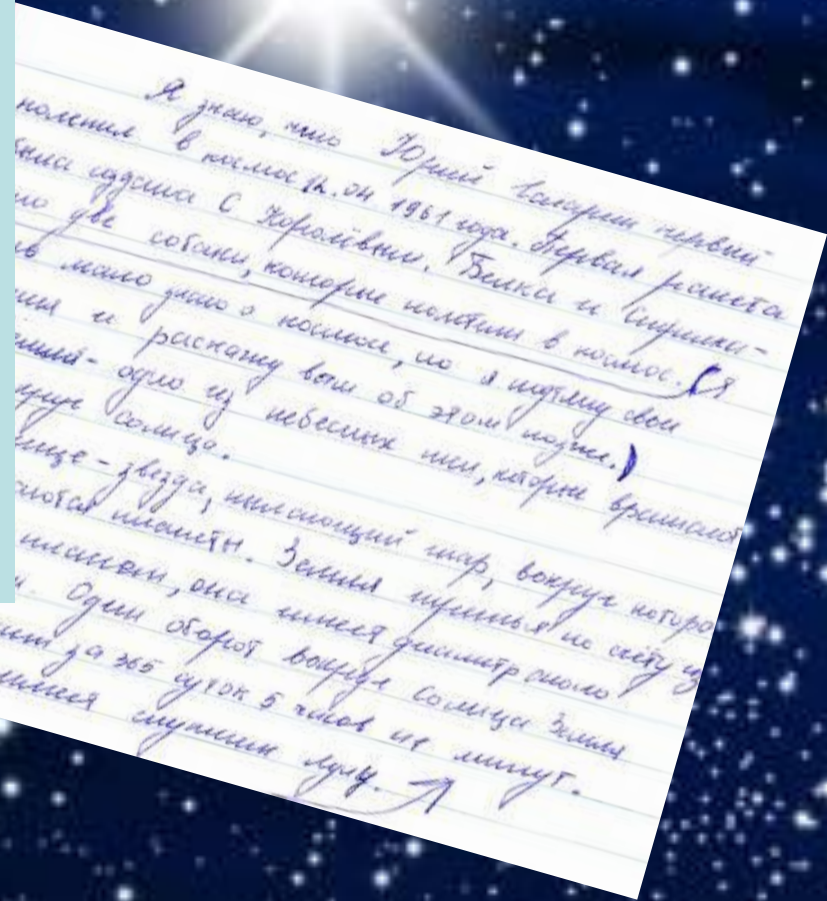 Я знаю, что Юрий Гагарин первый
полетел в космос 12. 04 1961 года. Первая ракета
была создана С Королёвым. Белка и Стрелка-
две собаки, которые полетели в космос. (Я
мало знаю о космосе, но я подтяну свои
и раскажу вам об этом позже.)
- одно из небесных тел, которые вращаются
вокруг солнца.
- звезда, пылающий шар, вокруг которо
планеты. Земля третья по счёту из
она имеет диаметр около
Один оборот вокруг Солнца Земля
за 365 суток 5 часов 48 минут.
спутник луну.